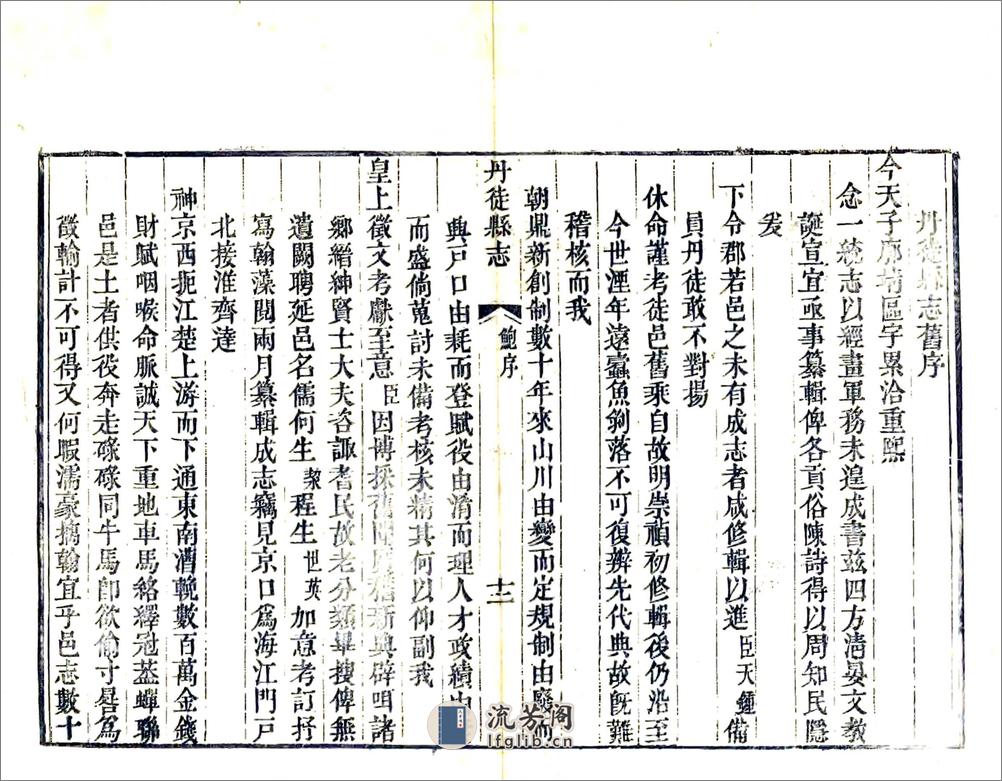 丹徒縣志舊序
今天子廓清區宇累洽重熙
念一統志以經畫軍務未遑成書茲四方清晏文教
誕宣宜亟事纂輯俾各貢俗陳詩得以周知民隱
爰
下令郡若邑之未有成志者咸修輯以進臣天鍾備
員丹徒敢不對揚
休命謹考徒邑舊乘自故明崇禎初修輯後仍沿至
今世湮年遠蠹魚剝落不可復辨先代典故旣難
稽核而我
朝鼎新創制數十年來山川由變而定規制由廢而
丹徒縣志
鮑序
十二
興戸口由耗而登賦役由淆而理人才政績由
而盛倘蒐討未備考核未精其何以仰副我
皇上徵文考獻至意臣因博採舊聞稽新典辟咡諸
鄉縉紳賢士大夫咨諏耆民故老分類畢搜俾無
遺闕聘延邑名儒何生洯程生世英加意考訂抒
寫翰藻閱兩月纂輯成志竊見京口爲海江門戸
北接淮齊達
神京西扼江楚上游而下通東南漕輓數百萬金錢
財賦咽喉命脈誠天下重地車馬絡繹冠葢蟬聯
邑是土者供役奔走碌碌同牛馬卽欲偷寸晷爲
徵輸計不可得又何暇濡豪摛翰宜乎邑志數十
流芳阁
lfglib.cn